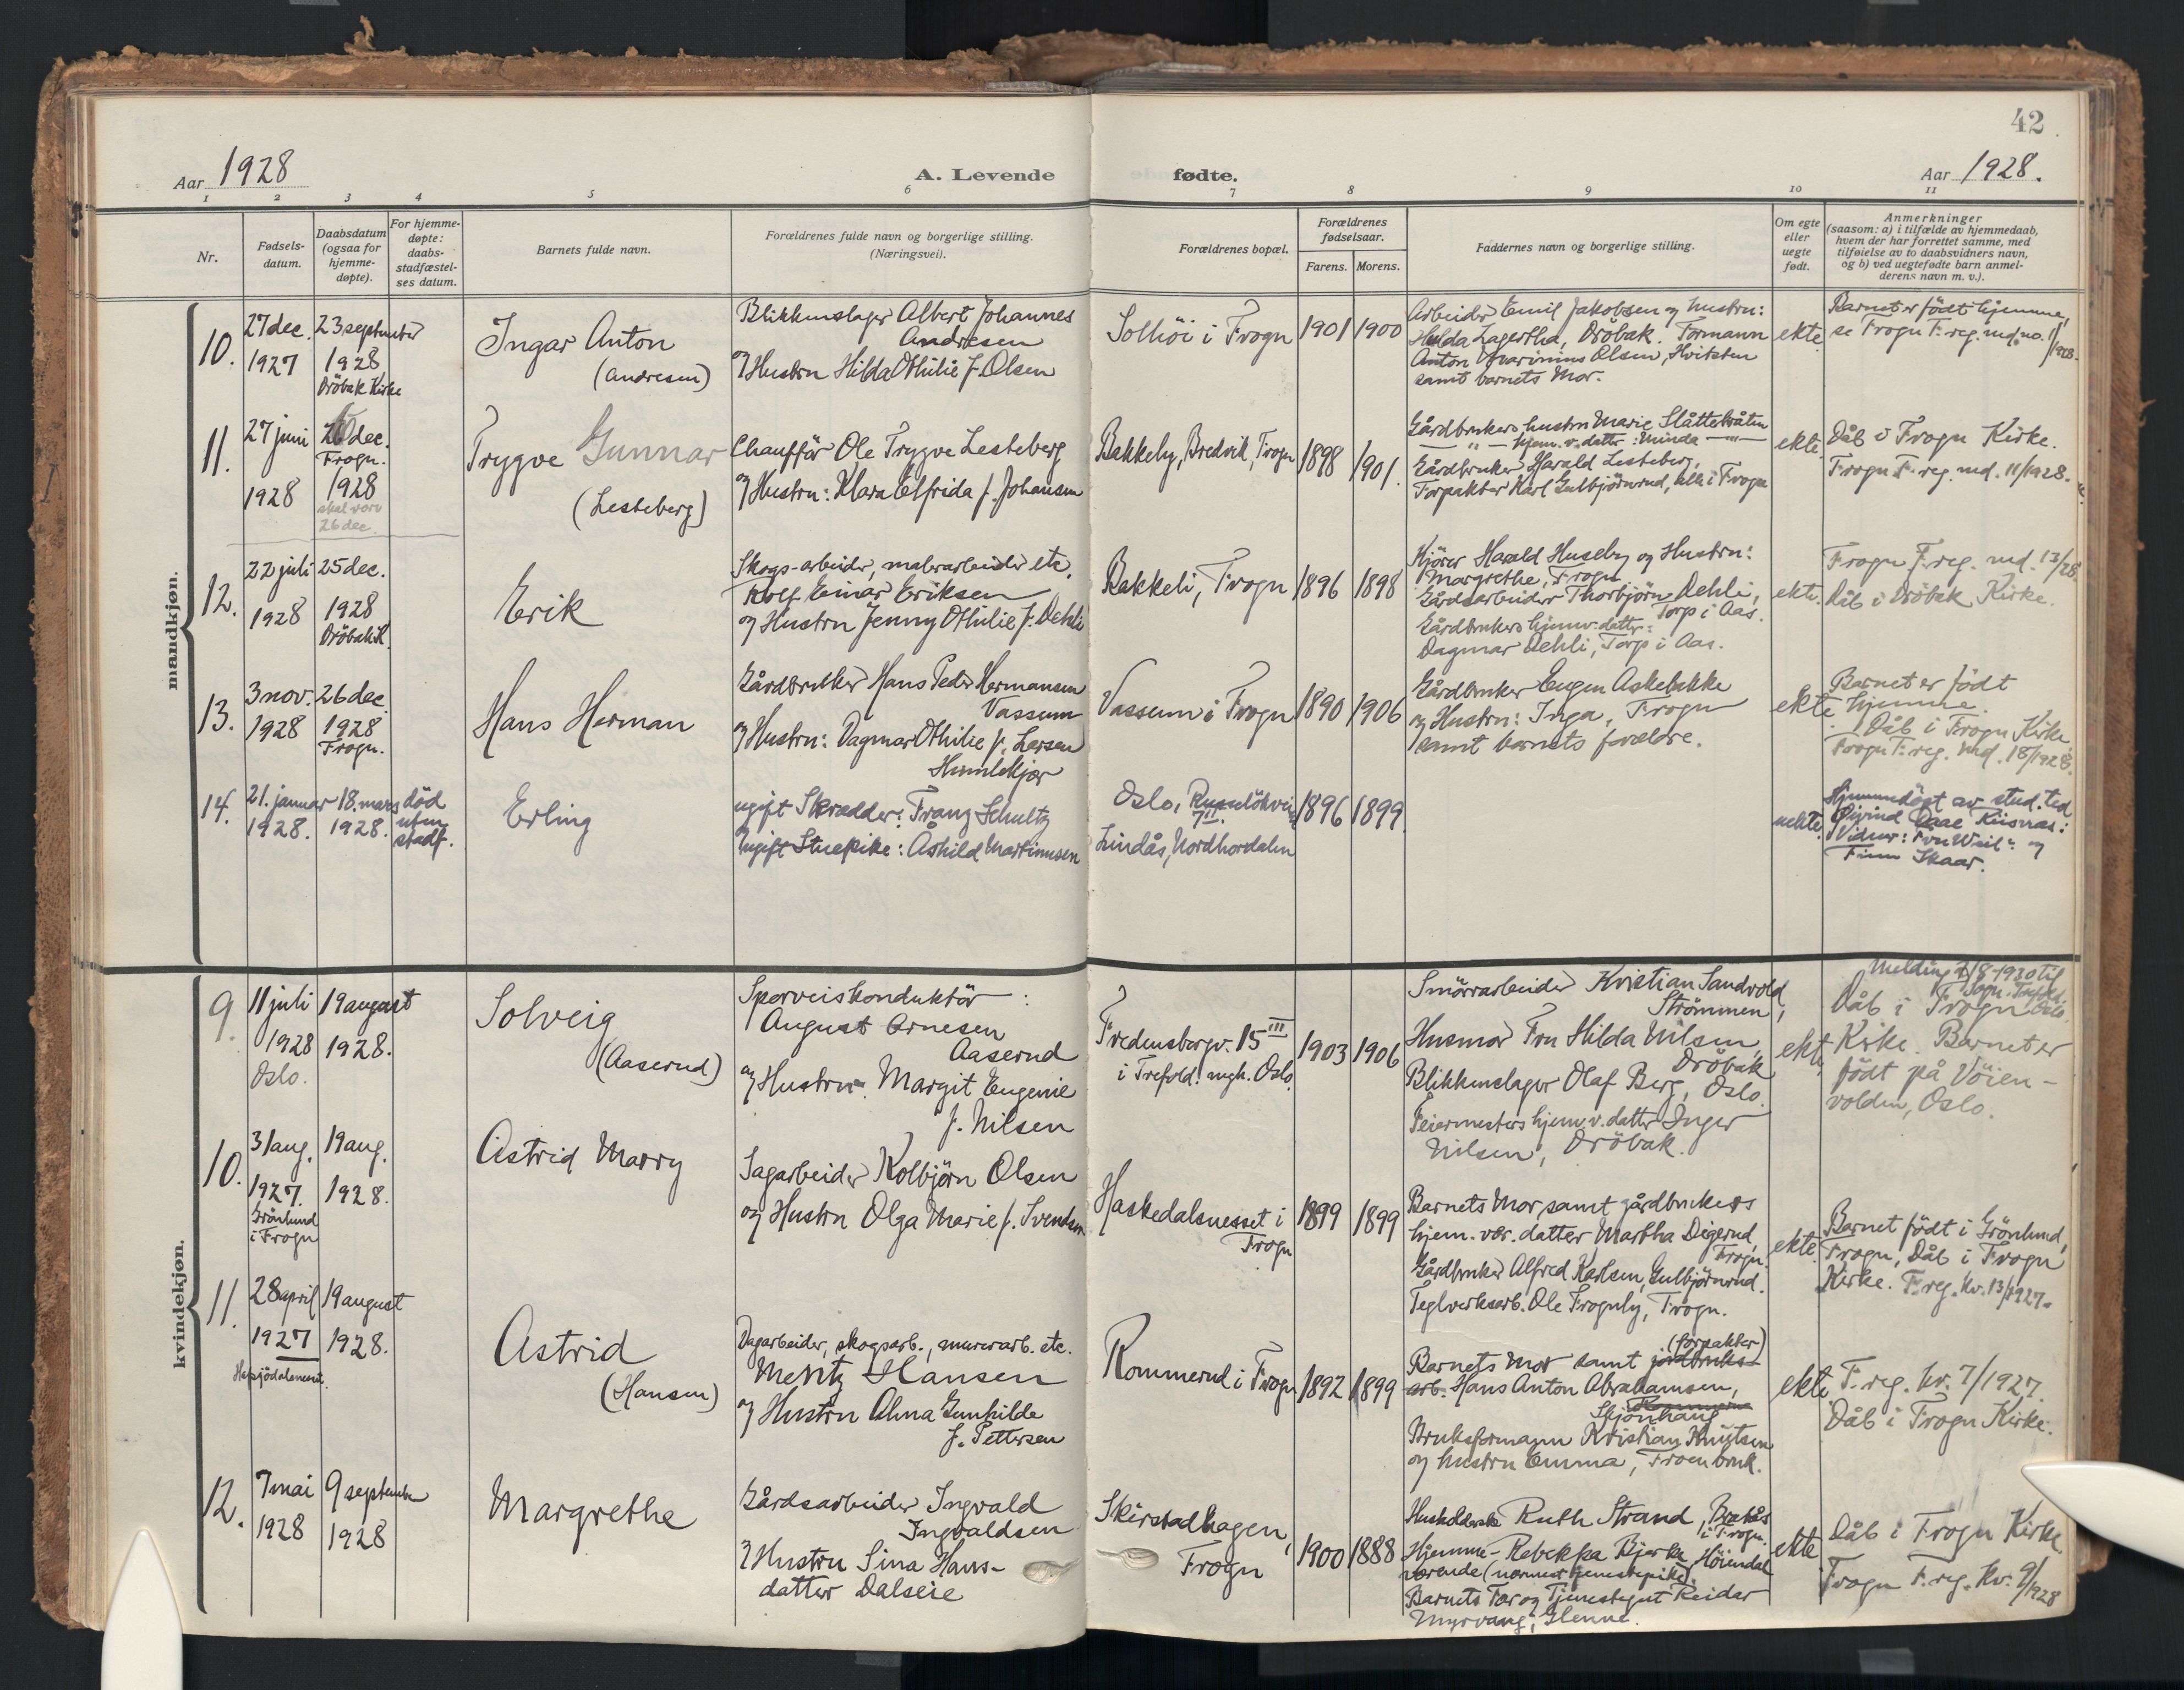 42
Aar 1928
A. Levende
fødte.
Aar 1928.
1 2 3 4 5 6 7 8 9 10 11
Nr.
Fødsels-
datum.
Daabsdatum
(ogsaa for
hjemme-
døpte).
For hjemme-
døpte:
daabs-
stadfæstel-
ses datum.
Barnets fulde navn.
Forældrenes fulde navn og borgerlige stilling.
(Næringsvei).
Forældrenes bopæl.
Forældrenes
fødselsaar.
Farens. Morens.
Faddernes navn og borgerlige stilling.
Om egte
eller
uegte
født.
Anmerkninger
(saasom: a) i tilfælde av hjemmedaab,
hvem der har forrettet samme, med
tilføielse av to daabsvidners navn,
og b) ved uegtefødte barn anmel-
derens navn m. v.).
mandkjøn.
10.
27 dec.
1927
23 september
1928
Dröbak Kirke
Ingar Anton
(Andresen)
Blikkenslager Albert Johannes
Andresen
og Hustru Hilda Othilie f. Olsen
Solhöi i Frogn
1901
1900
Arbeider Emil Jakobsen og hustru:
Hulda Lagertha, Dröbak. Formann
Anton Marinius Olsen, Hvitsten
samt barnets Mor.
ekte
Barnet er födt hjemme,
se Frogn F. reg. md. no. 1/1928.
11.
27 juni
1928
26 dec.
Frogn.
1928
skal være
26 dec.
Trygve Gunnar
(Lesteberg)
Chaufför Ole Trygve Lesteberg
og Hustru: Klara Elfrida f. Johansen
Bakkely, Bredvik, Frogn
1898
1901.
Gårdbrukers hustru Marie Slåttebråten
— " — hjem. v. datter: Minda — " —
Gårdbruker Harald Lesteberg,
Forpakter Karl Gulbjörnrud, alle i Frogn
ekte
Dåb i Frogn Kirke.
Frogn F. reg. md. 11/1928.
12.
22 juli
1928
25 dec.
1928
Dröbak K.
Erik
Skogs-arbeider, malerarbeider etc.
Rolf Einar Eriksen
og Hustru Jenny Othilie f. Dehli
Bakkeli, Frogn
1896
1898
Kjörer Harald Huseby og Hustru:
Margrethe, Frogn
Gårdsarbeider Thorbjörn Dehli,
Torp i Aas.
Gårdbrukers hjemv. datter:
Dagmar Dehli, Torp i Aas.
ekte.
Frogn F. reg. md. 13/28.
Dåb i Dröbak Kirke.
13.
3 nov.
1928
26 dec
1928
Frogn.
Hans Herman
Gårdbruker Hans Peder Hermansen
Vassum
og Hustru: Dagmar Othilie f. Larsen
Humlekjær
Vassum i Frogn
1890
1906
Gårdbruker Eugen Askebakke
og Hustru: Inga, Frogn
samt barnets forældre.
ekte
Barnet er födt
hjemme.
Dåb i Frogn Kirke
Frogn F. reg. md. 18/1928.
14.
21. januar
1928.
18. mars
1928.
död
uten
stadf.
Erling
ugift Skrædder: Franz Schultz
Ugift Stuepike: Åshild Martinusen
Oslo,
Lindås, Nordhordalen
1896
1899.
uekte.
Hjemmedöpt av stud. teol.
Vidner: Fru Weil og
Finn Skaar.
kvindekjøn.
9.
11 juli
1928
Oslo.
19 august
1928.
Solveig
(Aaserud)
Sporveiskonduktör:
August Arnesen
Aaserud
og Hustru: Margit Eugenie
f. Nilsen
Fredensborgv. 15 III
i Trefold. mgh. Oslo.
1903
1906
Smörrarbeider Kristian Sandvold,
Strömmen,
Husmor Fru Hilda Nilsen,
Dröbak
Blikkenslager Olaf Berg, Oslo.
Feiermesters hjemv. datter Inger
Nilsen, Dröbak.
ekte
Melding 2/8-1930 til
Dåb i Frogn
Kirke. Barnet er
födt på Vöien-
volden, Oslo.
10.
31 aug.
1927.
Grönlund
i Frogn
19 aug.
1928.
Astrid Marry
Sagarbeider Kolbjörn Olsen
og Hustru Olga Marie f. Svendsen
Haskedalsnesset i
Frogn
1899
1899
Barnets Mor samt gårdbrukers
hjem. vær. datter Martha Digerud,
Frogn.
Gårdbruker Alfred Karlsen, Gulbjörnrud.
Teglverksarb. Ole Frognly, Frogn.
ekte
Barnet födt i Grönlund,
Frogn, Dåb i Frogn
Kirke. F. reg. kv. 13/1927.
11.
28 april
1927
19 august
1928.
Astrid
(Hansen)
Dagarbeider, skogsarb., murerarb. etc.
Mentz Hansen
og Hustru Alma Gunhilde
f. Pettersen
Rommerud i Frogn
1892
1899
(forpakter)
Barnets Mor samt jordbruks-
arb. Hans Anton Abrahamsen,
Skjönhaug
Bruksformann Kristian Knutsen
og hustru Emma, Froen bruk.
ekte
F. reg. kv. 7/1927.
Dåb i Frogn Kirke.
12.
7 mai
1928
9 september
1928
Margrethe
Gårdsarbeider Ingvald
Ingvaldsen
og Hustru Sina Hans-
datter Dalseie
Skirstadhagen,
Frogn
1900
1888
Husholderske Ruth Strand, Brekås
i Frogn.
Hjemme- Rebekka Bjerke, Höiendal
værende (nærmest tjenestepike).
Barnets Far og Tjenestegut Reidar
Myrvang, Glenne.
ekte
Dåb i Frogn Kirke
Frogn F. reg. kv. 9/1928